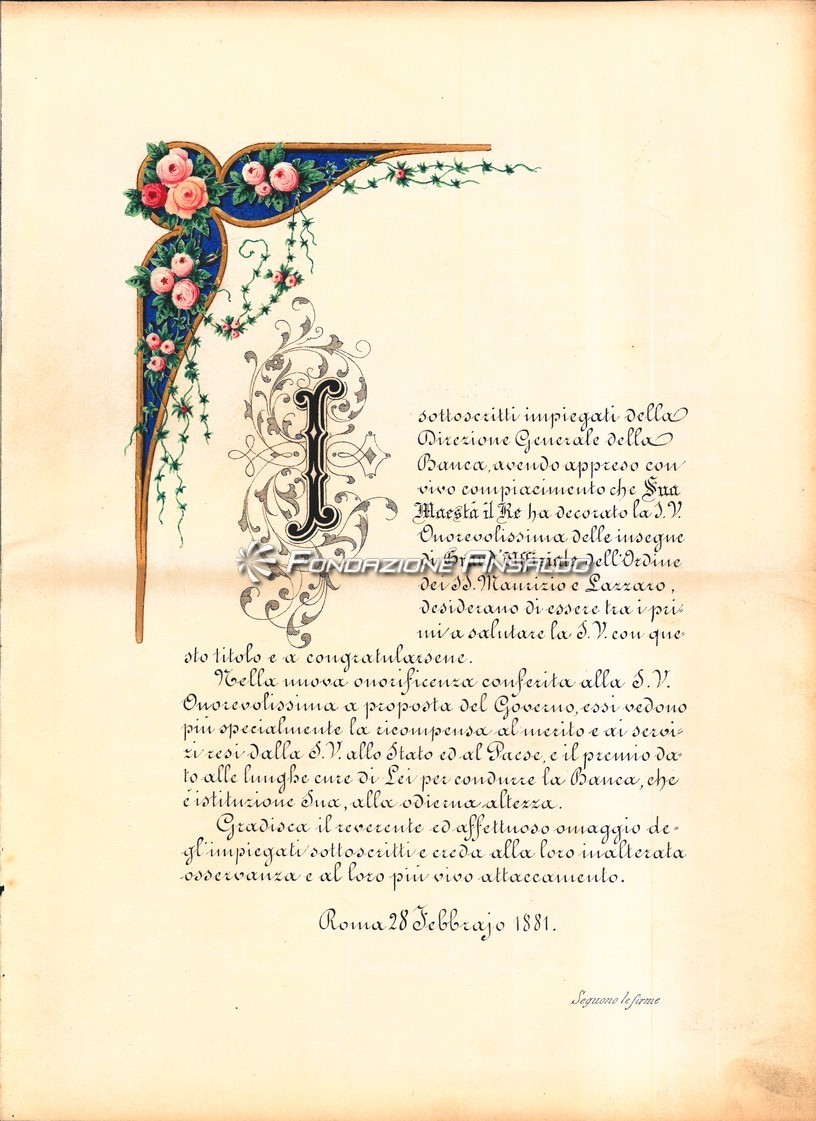 I
sottoscritti impiegati della
Direzione Generale della
Banca, avendo appreso con
vivo compiacimento che Sua
Maestà il Re ha decorato la S.V.
Onorevolissima delle insegne
di Grand'Uffiziale dell'Ordine
FONDAZIONE ANSALDO
dei SS. Maurizio e Lazzaro,
desiderano di essere tra i pri-
mi a salutare la S.V. con que-
sto titolo e a congratularsene.
Nella nuova onorificenza conferita alla S.V.
Onorevolissima a proposta del Governo, essi vedono
più specialmente la ricompensa al merito e ai servi-
zi resi dalla S.V. allo Stato ed al Paese, e il premio da-
to alle lunghe cure di Lei per condurre la Banca, che
è istituzione Sua, alla odierna altezza.
Gradisca il reverente ed affettuoso omaggio de-
gl'impiegati sottoscritti e creda alla loro inalterata
osservanza e al loro più vivo attaccamento.
Roma 28 Febbrajo 1881.
Seguono le firme